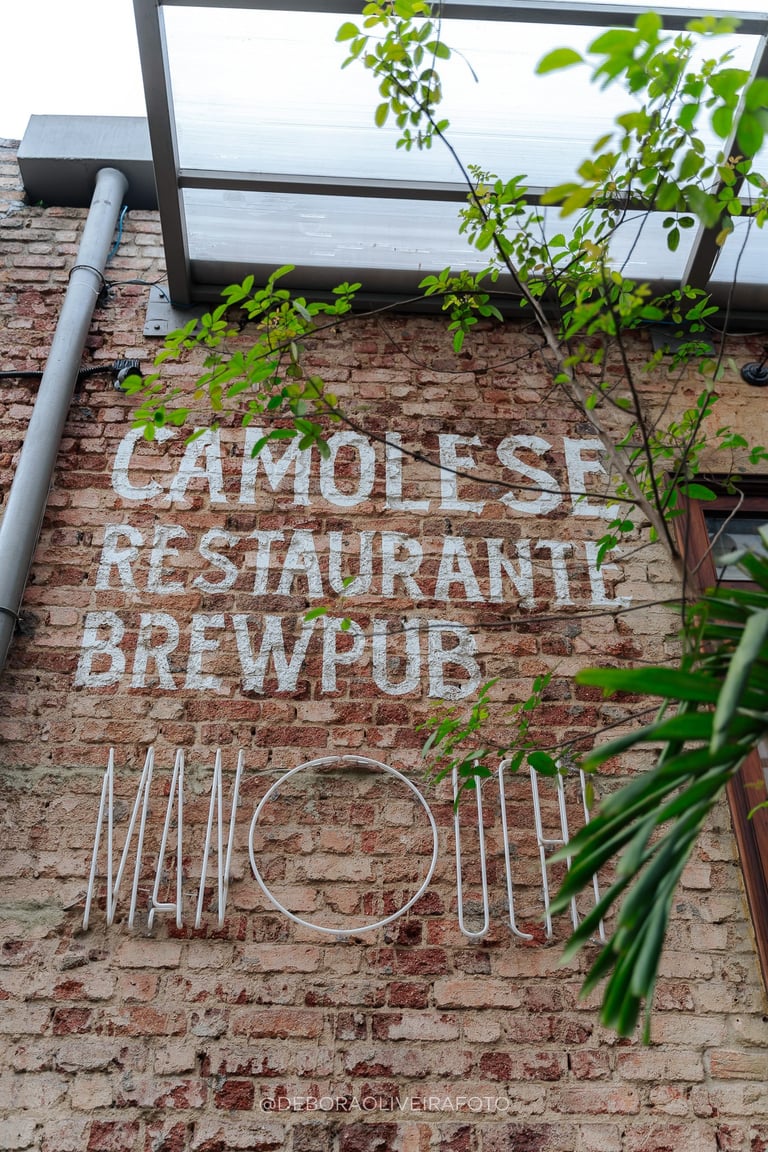 CAMOLESE
RESTAURANTE
BREWPUB
@DEBORAOLIVEIRAFOTO